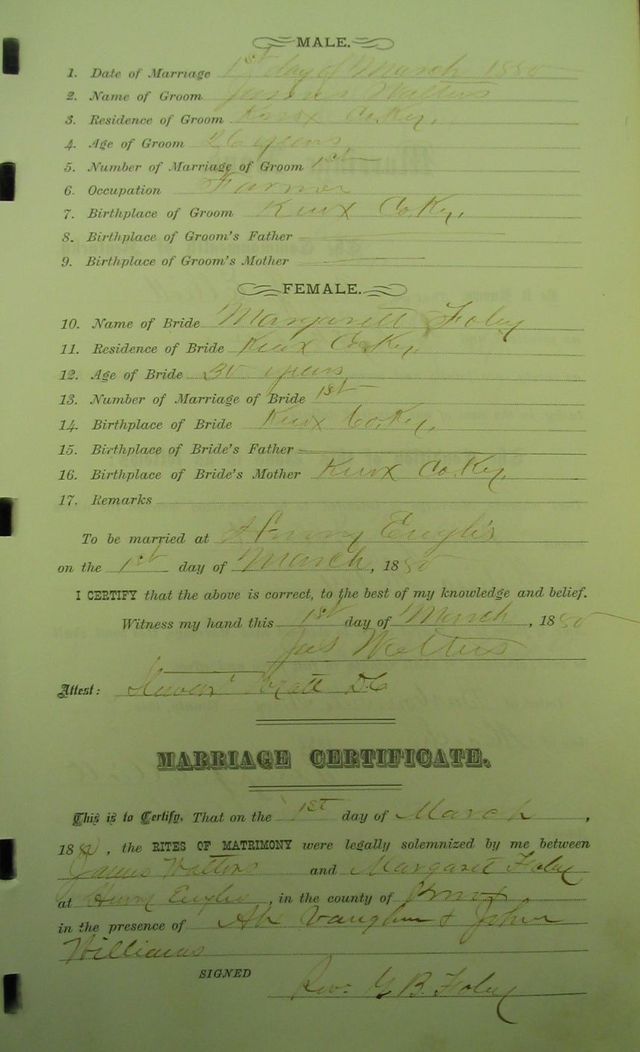 MALE.
1. Date of Marriage 1st day of March 1880
2. Name of Groom James Walters
3. Residence of Groom Knox Co Ky.
4. Age of Groom 26 years
5. Number of Marriage of Groom 1st
6. Occupation Farmer
7. Birthplace of Groom Knox Co. Ky.
8. Birthplace of Groom's Father
9. Birthplace of Groom's Mother
FEMALE.
10. Name of Bride Margarett Foley
11. Residence of Bride Knox Co Ky.
12. Age of Bride years
13. Number of Marriage of Bride 1st
14. Birthplace of Bride Knox Co. Ky.
15. Birthplace of Bride's Father
16. Birthplace of Bride's Mother Knox Co Ky.
17. Remarks
To be married at
on the 1st day of March, 1880
I CERTIFY that the above is correct, to the best of my knowledge and belief.
Witness my hand this 1st day of March, 1880
Jas Walters
Attest: D C
MARRIAGE CERTIFICATE.
This is to Certify, That on the 1st day of March,
1880, the RITES OF MATRIMONY were legally solemnized by me between
James Walters and Margaret Foley
at Henry, in the county of Knox
in the presence of Vaughn & John
Williams
SIGNED
Rev. G. B. Foley